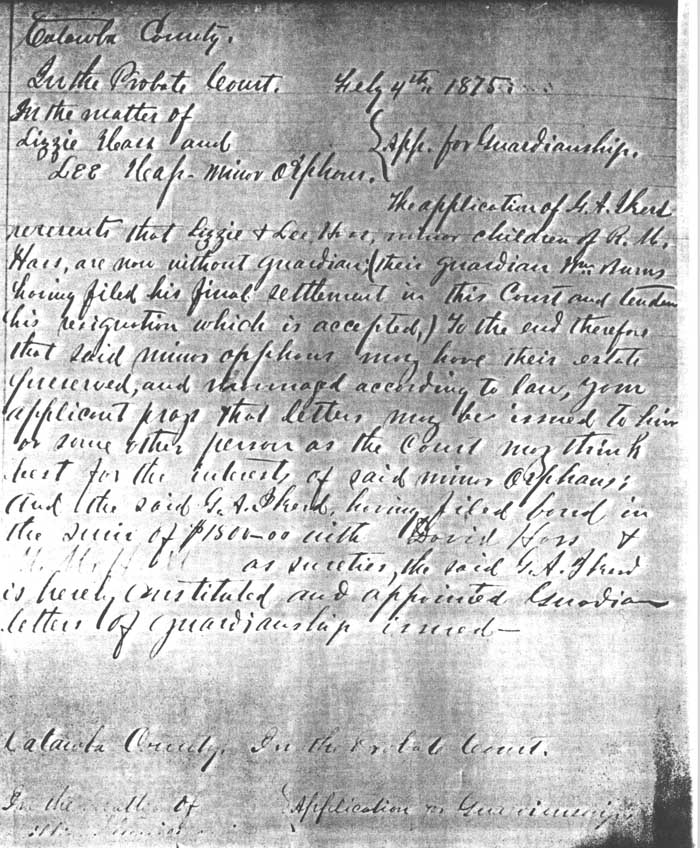 Catawba County.
In the Probate Court. Feby 4th 1875.
In the matter of
Lizzie Haas and } App. for Guardianship.
LEE Haas minor Orphans.
The application of G. A. Ikerd
represents that Lizzie & Lee Haas, minor children of R. M.
Haas, are now without guardian; (their guardian Wm. Burns
having filed his final settlement in this Court and tenders
his resignation which is accepted,) To the end therefore
that said minor opphons may have their estate
preserved, and mannaged according to law, your
applicant prays that letters may be issued to him
or some other person as the Court may think
best for the interests of said minor Orphans;
And the said G. A. Ikerd, having filed bond in
the sum of $1500-00 with David Haas &
M. as sureties, the said G. A. Ikerd
is hereby constituted and appointed Guardian
letters of guardianship issued—
Catawba County. In the Probate Court.
In the matter of } Application